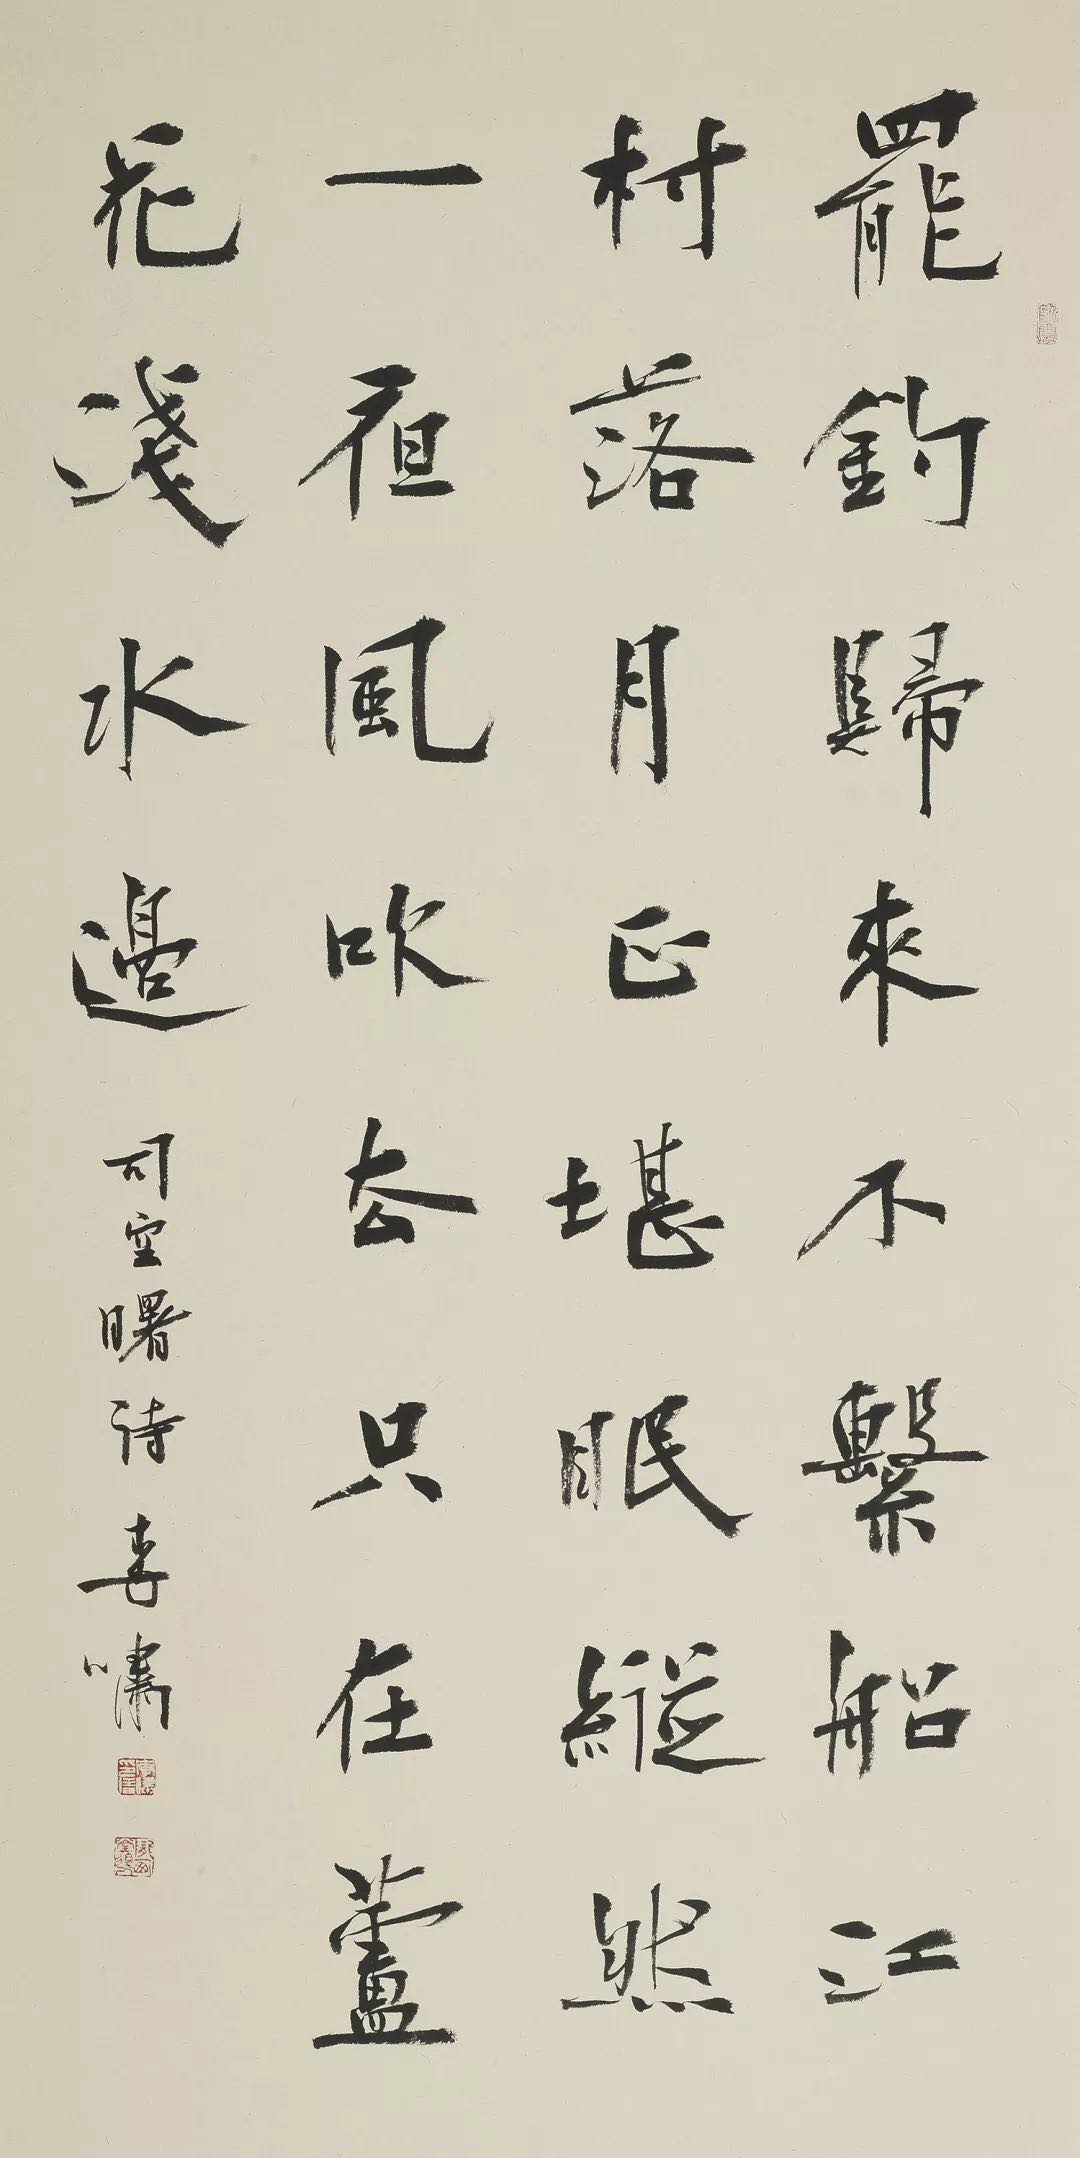 罷釣歸來不繫船江
村落月正堪眠縱然
一夜風吹去只在蘆
花淺水邊
司空曙诗 李嘯